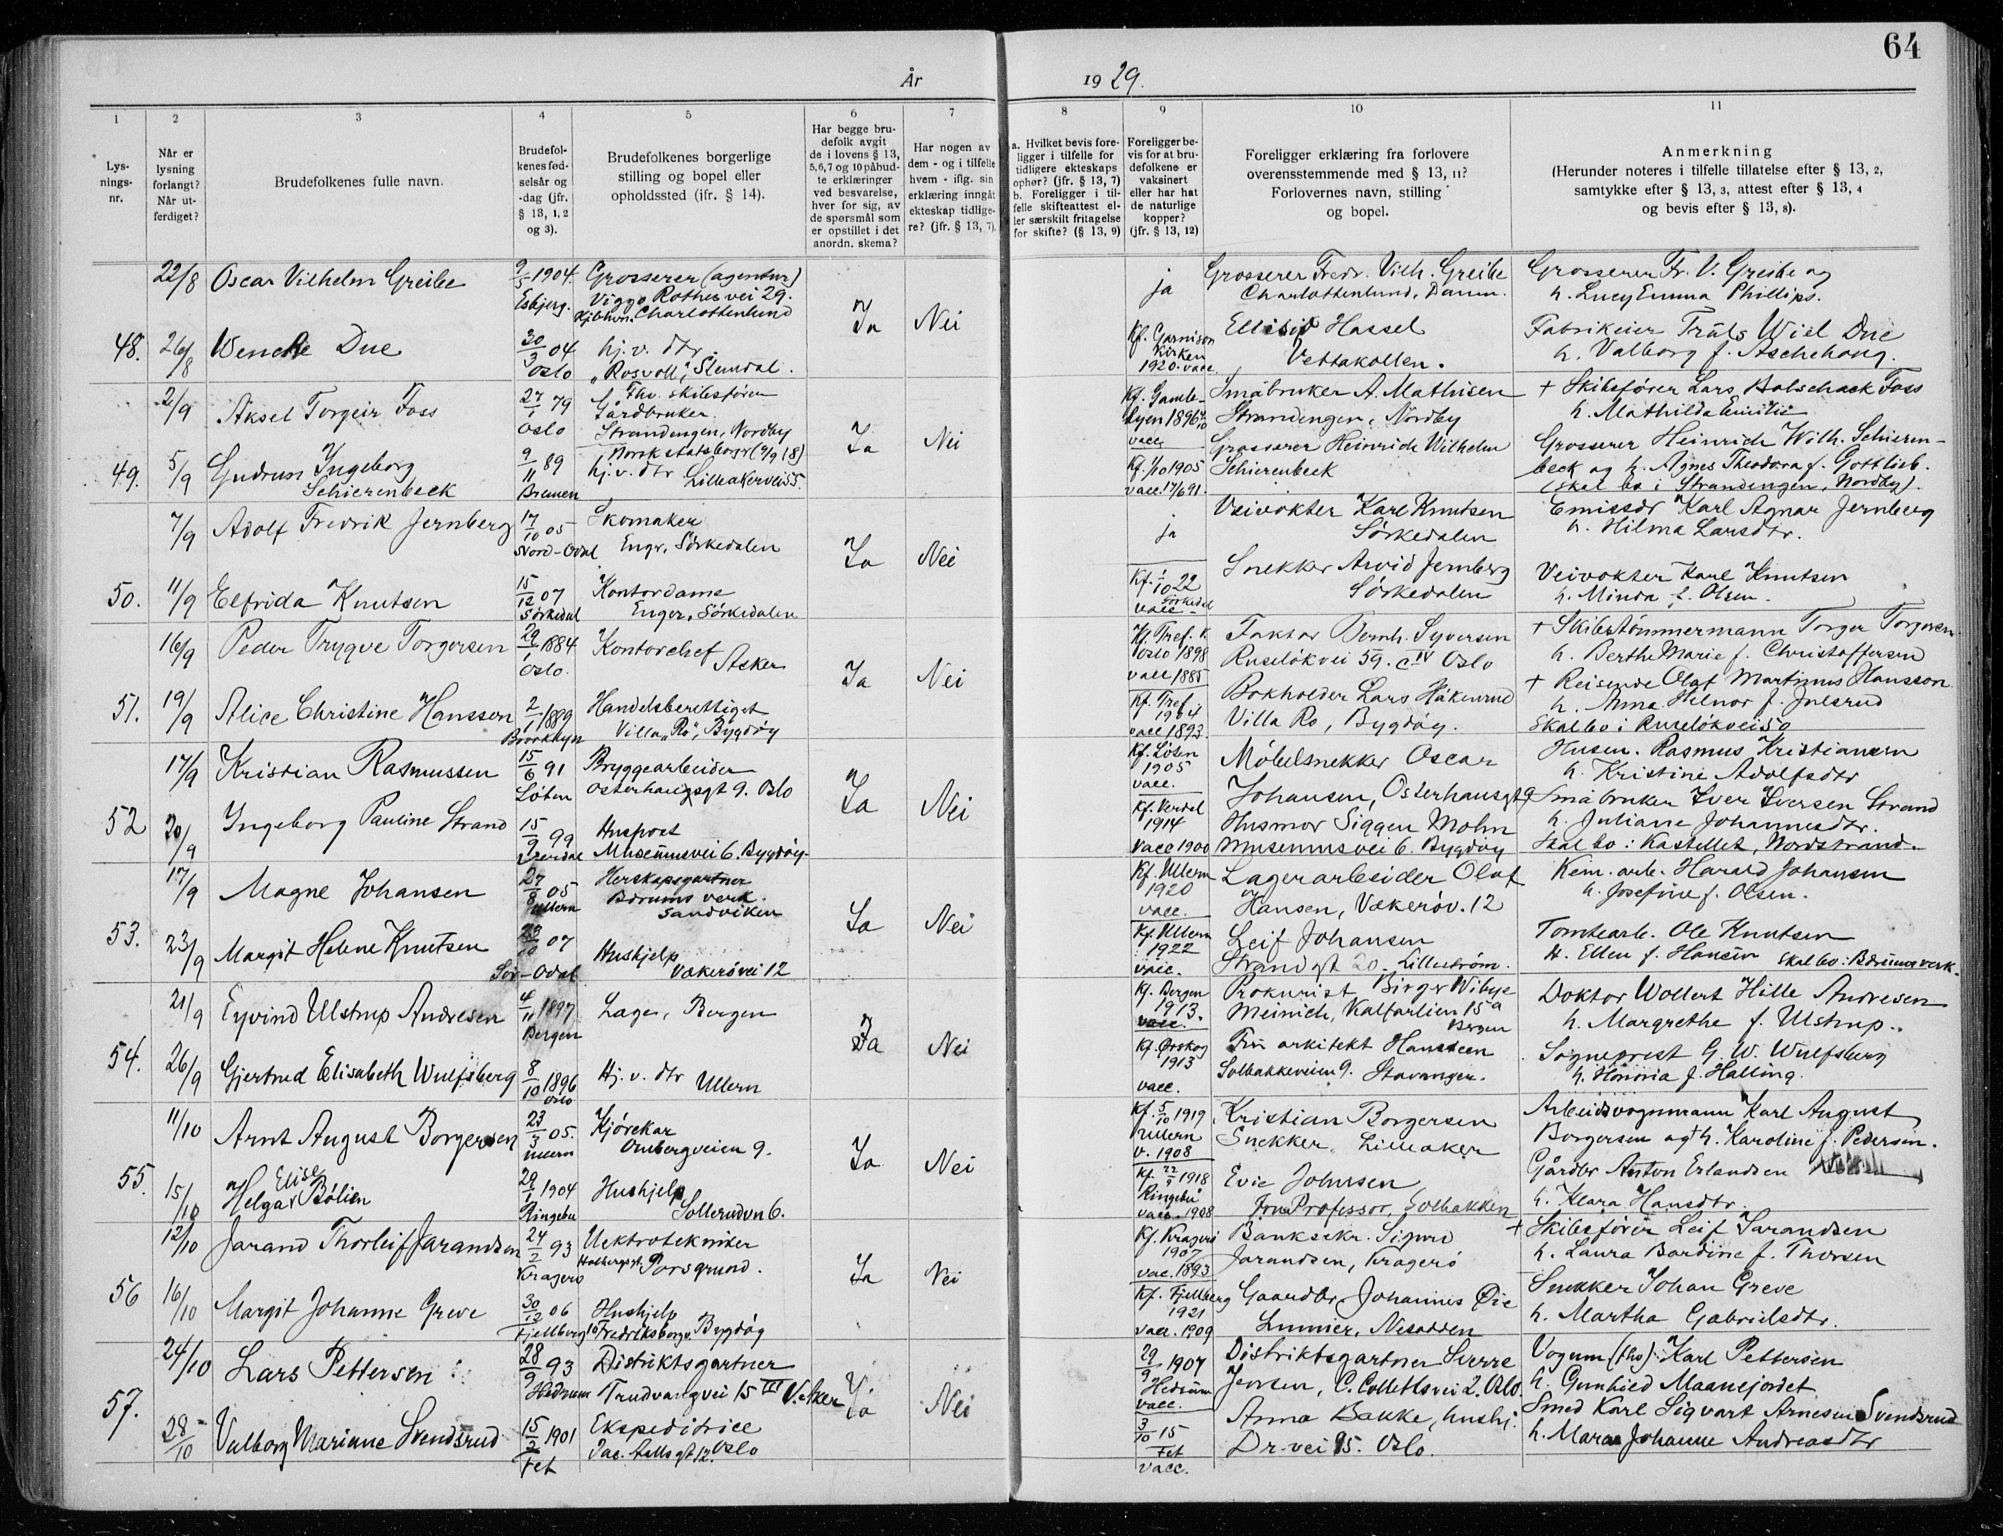 64
År 1929.
1 2 3 4 5 6 7 8 9 10 11
Lys-
nings-
nr.
Når er
lysning
forlangt?
Når ut-
ferdiget?
Brudefolkenes fulle navn.
Brudefol-
kenes fød-
selsår og
-dag (jfr.
§ 13, 1, 2
og 3).
Brudefolkenes borgerlige
stilling og bopel eller
opholdssted (jfr. § 14).
Har begge bru-
defolk avgit
de i lovens § 13,
5,6,7 og 10 påbud-
te erklæringer
ved besvarelse,
hver for sig, av
de spørsmål som
er opstillet i det
anordn. skema?
Har nogen av
dem - og i tilfelle
hvem - iflg. sin
erklæring inngått
ekteskap tidlige-
re? (jfr. § 13, 7).
a. Hvilket bevis fore-
ligger i tilfelle for
tidligere ekteskaps
ophør? (jfr. § 13, 7)
b. Foreligger i til-
felle skifteattest el-
ler særskilt fritagelse
for skifte? (§ 13, 9)
Foreligger be-
vis for at bru-
defolkene er
vaksinert
eller har hat
de naturlige
kopper?
(jfr. § 13, 12)
Foreligger erklæring fra forlovere
overensstemmende med § 13, 11?
Forlovernes navn, stilling
og bopel.
Anmerkning
(Herunder noteres i tilfelle tillatelse efter § 13, 2,
samtykke efter § 13, 3, attest efter § 13, 4
og bevis efter § 13, 8).
22/8 Oscar Vilhelm Greibe
9/5 1904. Esbjerg.
Grosserer (agentur)
Viggo Rothes vei 29.
Kjbhvn. Charlottenlund
Ja Nei
ja
Grosserer Fredr. Vilh. Greibe
Charlottenlund, Danm.
Grosserer Fr. V. Greibe og
h. Lucy Emma Phillips.
48. 26/8 Wenche Due
30/3 04 Oslo
hj. v. dtr.
"Rosvoll", Slemdal.
Kf. Garnison
Kirken
1920. vacc.
Ellisif Hassel
Vettakollen.
Fabrikeier Truls Wiel Due
h. Valborg f. Aschehoug.
2/9 Aksel Torgeir Foss
27/1 79 Oslo
f. Thv. skibsfører
Gårdbruker.
Strandengen, Nordby
Norsk statsborger (9/9 18)
Ja Nei
Kf. Gamle-
byen 1896
vacc.
Småbruker A. Mathisen
Strandengen, Nordby
+ Skibsfører Lars Bolschack Foss
h. Mathilde Emilie
49. 5/9 Gudrun Ingeborg
Schierenbeck
9/11 89 Bremen
hj. v. dtr Lilleakervei 55.
Kf. 1/10 1905
vacc. 17/6 91.
Grosserer Heinrich Wilhelm
Schierenbeck
Grosserer Heinrich Wilh. Schieren-
beck og h. Agnes Theodora f. Gottlieb.
(skal bo i Strandengen, Nordby).
7/9 Adolf Fredrik Jernberg
17/10 05 Nord-Odal
Skomaker
Enger, Sørkedalen
Ja Nei
ja
Veivokter Karl Knutsen
Sørkedalen
Emissær Karl Agnar Jernberg
h. Hilma Larsdtr.
50. 11/9 Elfrida Knutsen
15/12 07 Sørkedal
Kontordame
Enger, Sørkedalen
Kf. 1/10 22
Sørkedal
vacc
Snekker Arvid Jernberg
Sørkedalen
Veivokter Karl Knutsen
h. Minda f. Olsen.
16/9 Peder Trygve Torgersen
29/1 1884 Oslo.
Kontorchef
Asker
Ja Nei
Kf. Tref. k.
Oslo 1898
vacc 1885
Faktor Bernh. Syversen
Ruseløkvei 59. c IV Oslo
+ Skibstømmermann Torger Torgersen
h. Berthe Marie f. Christoffersen
51. 19/9 Alice Christine Hansson
2/7 1889 Brooklyn
Handelsberettiget
Villa "Ro", Bygdøy
Kf. Tref.
1904
vacc 1893.
Bokholder Lars Håkenrud
Villa Ro, Bygdøy.
+ Reisende Olaf Martinus Hansson
h. Anna Helnor f. Julsrud
Skal bo i Ruseløkvei 50
17/9 Kristian Rasmussen
15/6 91 Løten
Bryggearbeider
Osterhausgt 9. Oslo
Ja Nei
Kf. Løten
1905
vacc.
Møbelsnekker Oscar
Johansen, Osterhausgt 9
Husm. Rasmus Kristiansen
h. Kristine Adolfsdtr
52 20/9 Ingeborg Pauline Strand
15/9 99 Verdal
Huspost
Museumsvei 6. Bygdøy.
Kf. Verdal
1914
vacc 1900
Husmor Siggen Mohn
Museumsvei 6. Bygdøy
Småbruker Iver Iversen Strand
h. Juliane Johannesdtr.
Skal bo: Kastellet, Nordstrand.
17/9 Magne Johansen
27/8 05 Ullern
Herskapsgartner
Bærums verk.
Sandviken
Ja Nei
Kf. Ullern
1920
vacc.
Lagerarbeider Olaf
Hansen, Vækerøv. 12
Kem. arb. Harald Johansen
h. Josefine f. Olsen.
53. 23/9 Margit Helene Knutsen
23/10 07 Sør-Odal
Hushjelp
Vækerøvei 12
Kf. Ullern
1922
vacc.
Leif Johansen
Strandgt 20. Lillestrøm.
Tomtearb. Ole Knutsen
H. Ellen f. Hansen Skal bo: Bærums verk.
21/9 Eyvind Ulstrup Andresen
4/11 1897 Bergen
Læge, Bergen
Ja Nei
Kf. Bergen
1913.
vacc.
Prokurist Birger Wibye
Meinich, Kalfarlien 15a
Bergen
Doktor Wollert Hille Andresen
h. Margrethe f. Ulstrup.
54. 26/9 Gjertrud Elisabeth Wulfsberg
8/10 1896 Oslo
Hj. v. dtr
Ullern
Kf. Ørskog
1913
vacc.
Fru arkitekt Hansteen
Solbakkeveien 9. Stavanger.
Sogneprest G. W. Wulfsberg
h. Honoria f. Halling.
11/10 Arnt August Borgersen
23/3 05. Ullern
Kjørekar
Ombergveien 9.
Ja Nei
Kf. 5/10 1919
Ullern
v. 1908
Kristian Borgersen
Snekker, Lilleaker
Arbeidsvognmann Karl August
Borgersen og + h. Karoline f. Pedersen.
55. 15/10 Helga Elise Bølien
29/1 1904 Ringebu
Hushjelp
Sollerudvn 6.
Kf. 22/9 1918
Ringebu
vacc. 1908
Evie Johnsen
Fru Professor, Solbakken
Gårdbr Anton Erlandsen
h. Klara Hansdtr
12/10 Jarand Thorleif Jarandsen
24/2 93 Kragerø
Elektrotekniker
Porsgrund.
Ja Nei
Kf. Kragerø
1907
vac. 1893
Banksekr. Sigurd
Jarandsen, Kragerø
+ Skibsfører Leif Jarandsen
h. Laura Bardine f. Thorsen
56 16/10 Margit Johanne Greve
30/12 06 Fjellberg
Hushjelp
16 Fredriksborgv. Bygdøy
Kf. Fjellberg
1921
vacc. 1909
Gaardbr Johannes Øie
Nesodden
Snekker Johan Greve
h. Martha Gabrielsdtr.
24/10 Lars Pettersen
28/9 93 Hedrum
Distriktsgartner
Trudvangvei 15 III V. Aker
Ja Nei
29/9 1907
Hedrum
vacc.
Distriktsgartner Sverre
Jensen, C. Collettsvei 2. Oslo.
Vognm. (ths). Karl Pettersen
h. Gunhild Maanejordet
57. 28/10 Valborg Mariane Svendsrud
15/2 1901 Fet
Ekspeditrice
Jac. Aallsgt 12. Oslo
3/10 15
Fet
vacc.
Anna Bakke, hushj.
Dr.vei 95. Oslo.
Smed Karl Sigvart Arnesen Svendsrud
h. Maren Johanne Andreasdtr